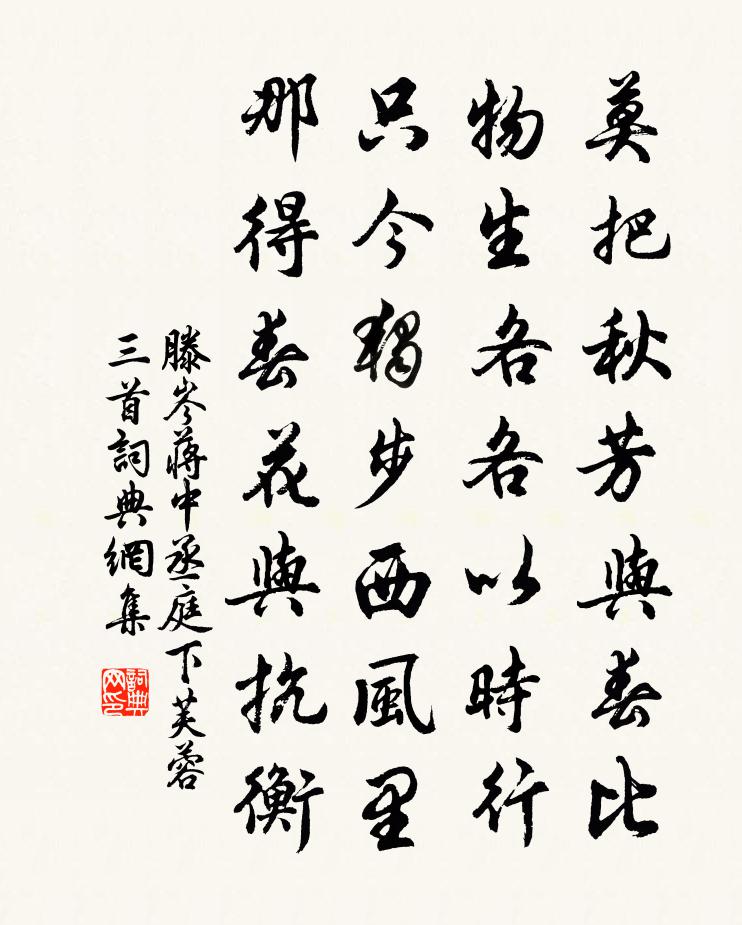 莫把秋芳與春比
物生各各以時行
只今獨步西風里
那得春花與抗衡
滕岑蔣中丞庭下芙蓉
三首詞典網集
詞典
网印